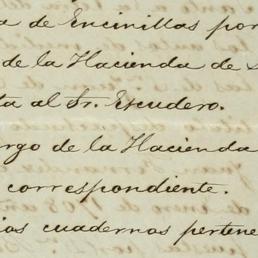 a de Encinillas por
de la Hacienda de
ta al Sr. Escudero.
rgo de la Hacienda
correspondiente.
ios cuadernos pertene